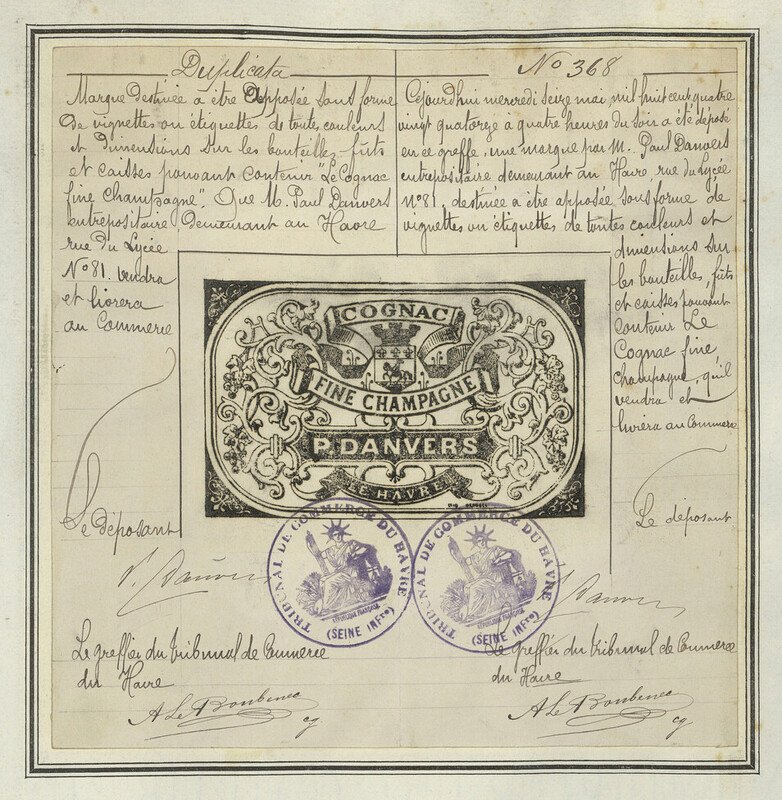 Duplicata
Marque destinée a être apposée sous forme
de vignettes ou étiquettes de toutes couleurs
et dimensions sur les bouteilles, fûts
et caisses pouvant contenir "Le Cognac
fine champagne". Que M. Paul Danvers
entrepositaire, demeurant au Havre
rue du Lycée
No 81. vendra
et livrera
au Commerce
Le déposant
P. Danvers
Le greffier du tribunal de Commerce
du Havre
No 368
Cejourdhui mercredi seize mai, mil huit cent quatre
vingt quatorze a quatre heures du soir a été déposé
en ce greffe, une marque par M. Paul Danvers
entrepositaire demeurant au Havre, rue du Lycée
No 81, destinée a être apposée sous forme de
vignettes ou étiquettes de toutes couleurs et
dimensions sur
les bouteilles, fûts
et caisses pouvant
contenir Le
Cognac fine
champagne, qu'il
vendra et
livrera au Commerce
Le déposant
Danvers
Le greffier du tribunal de Commerce
du Havre
COGNAC
FINE CHAMPAGNE
P. DANVERS
LE HAVRE
TRIBUNAL DE COMMERCE DU HAVRE
RÉPUBLIQUE FRANÇAISE
(SEINE INFRE)
TRIBUNAL DE COMMERCE DU HAVRE
RÉPUBLIQUE FRANÇAISE
(SEINE INFRE)